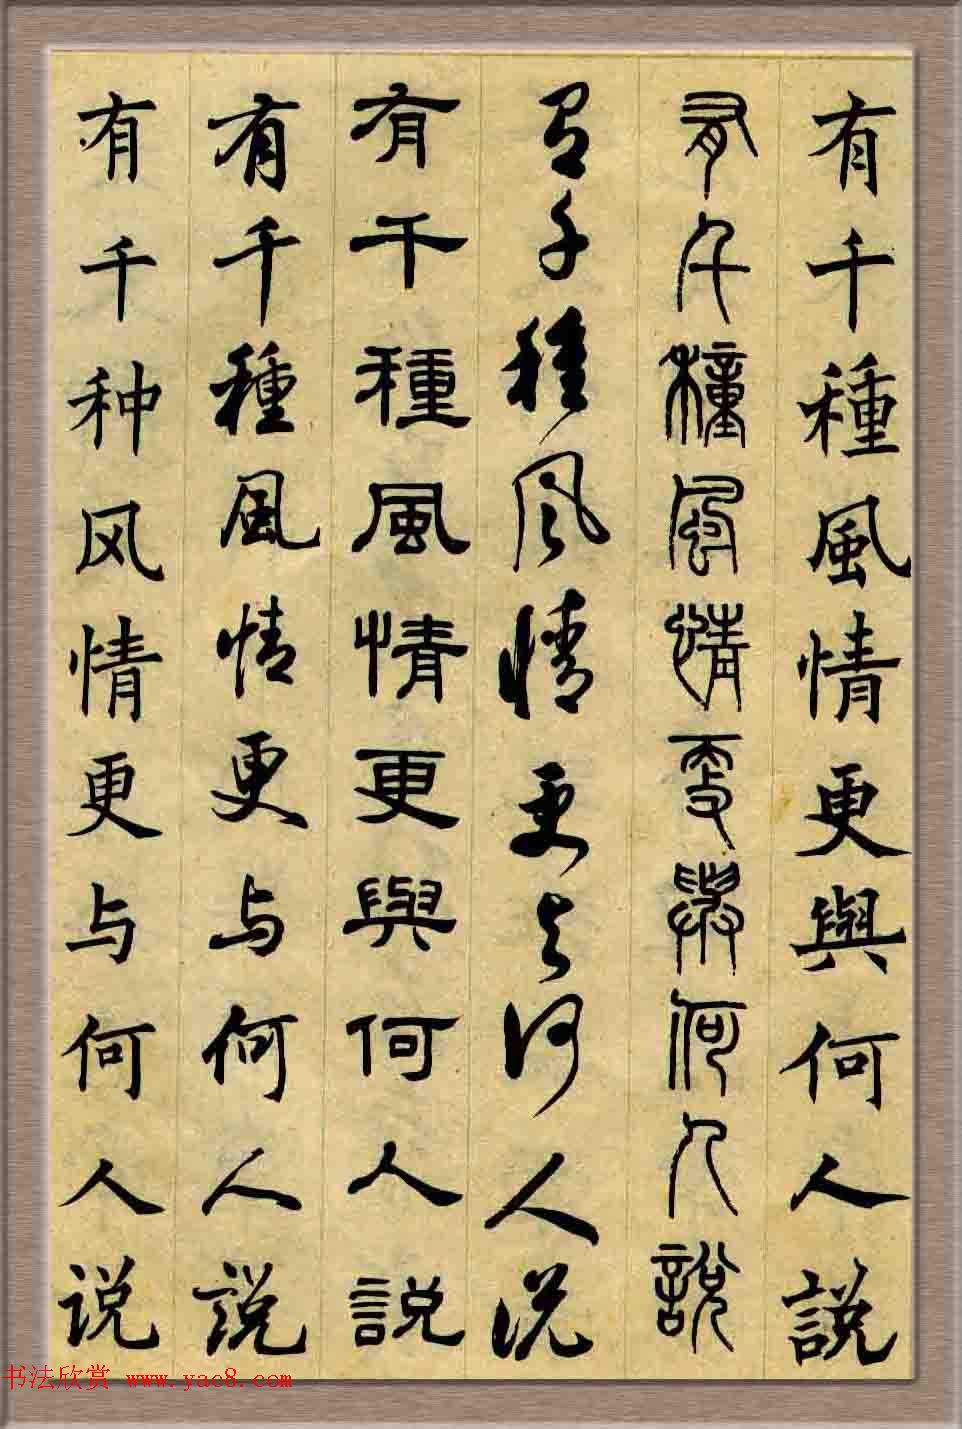 有千種風情更與何人說
有千種風情更與何人說
有千種风情更与何人说
有千種風情更與何人説
有千種風情更与何人説
有千种风情更与何人说
书法欣赏 www.yac8.com